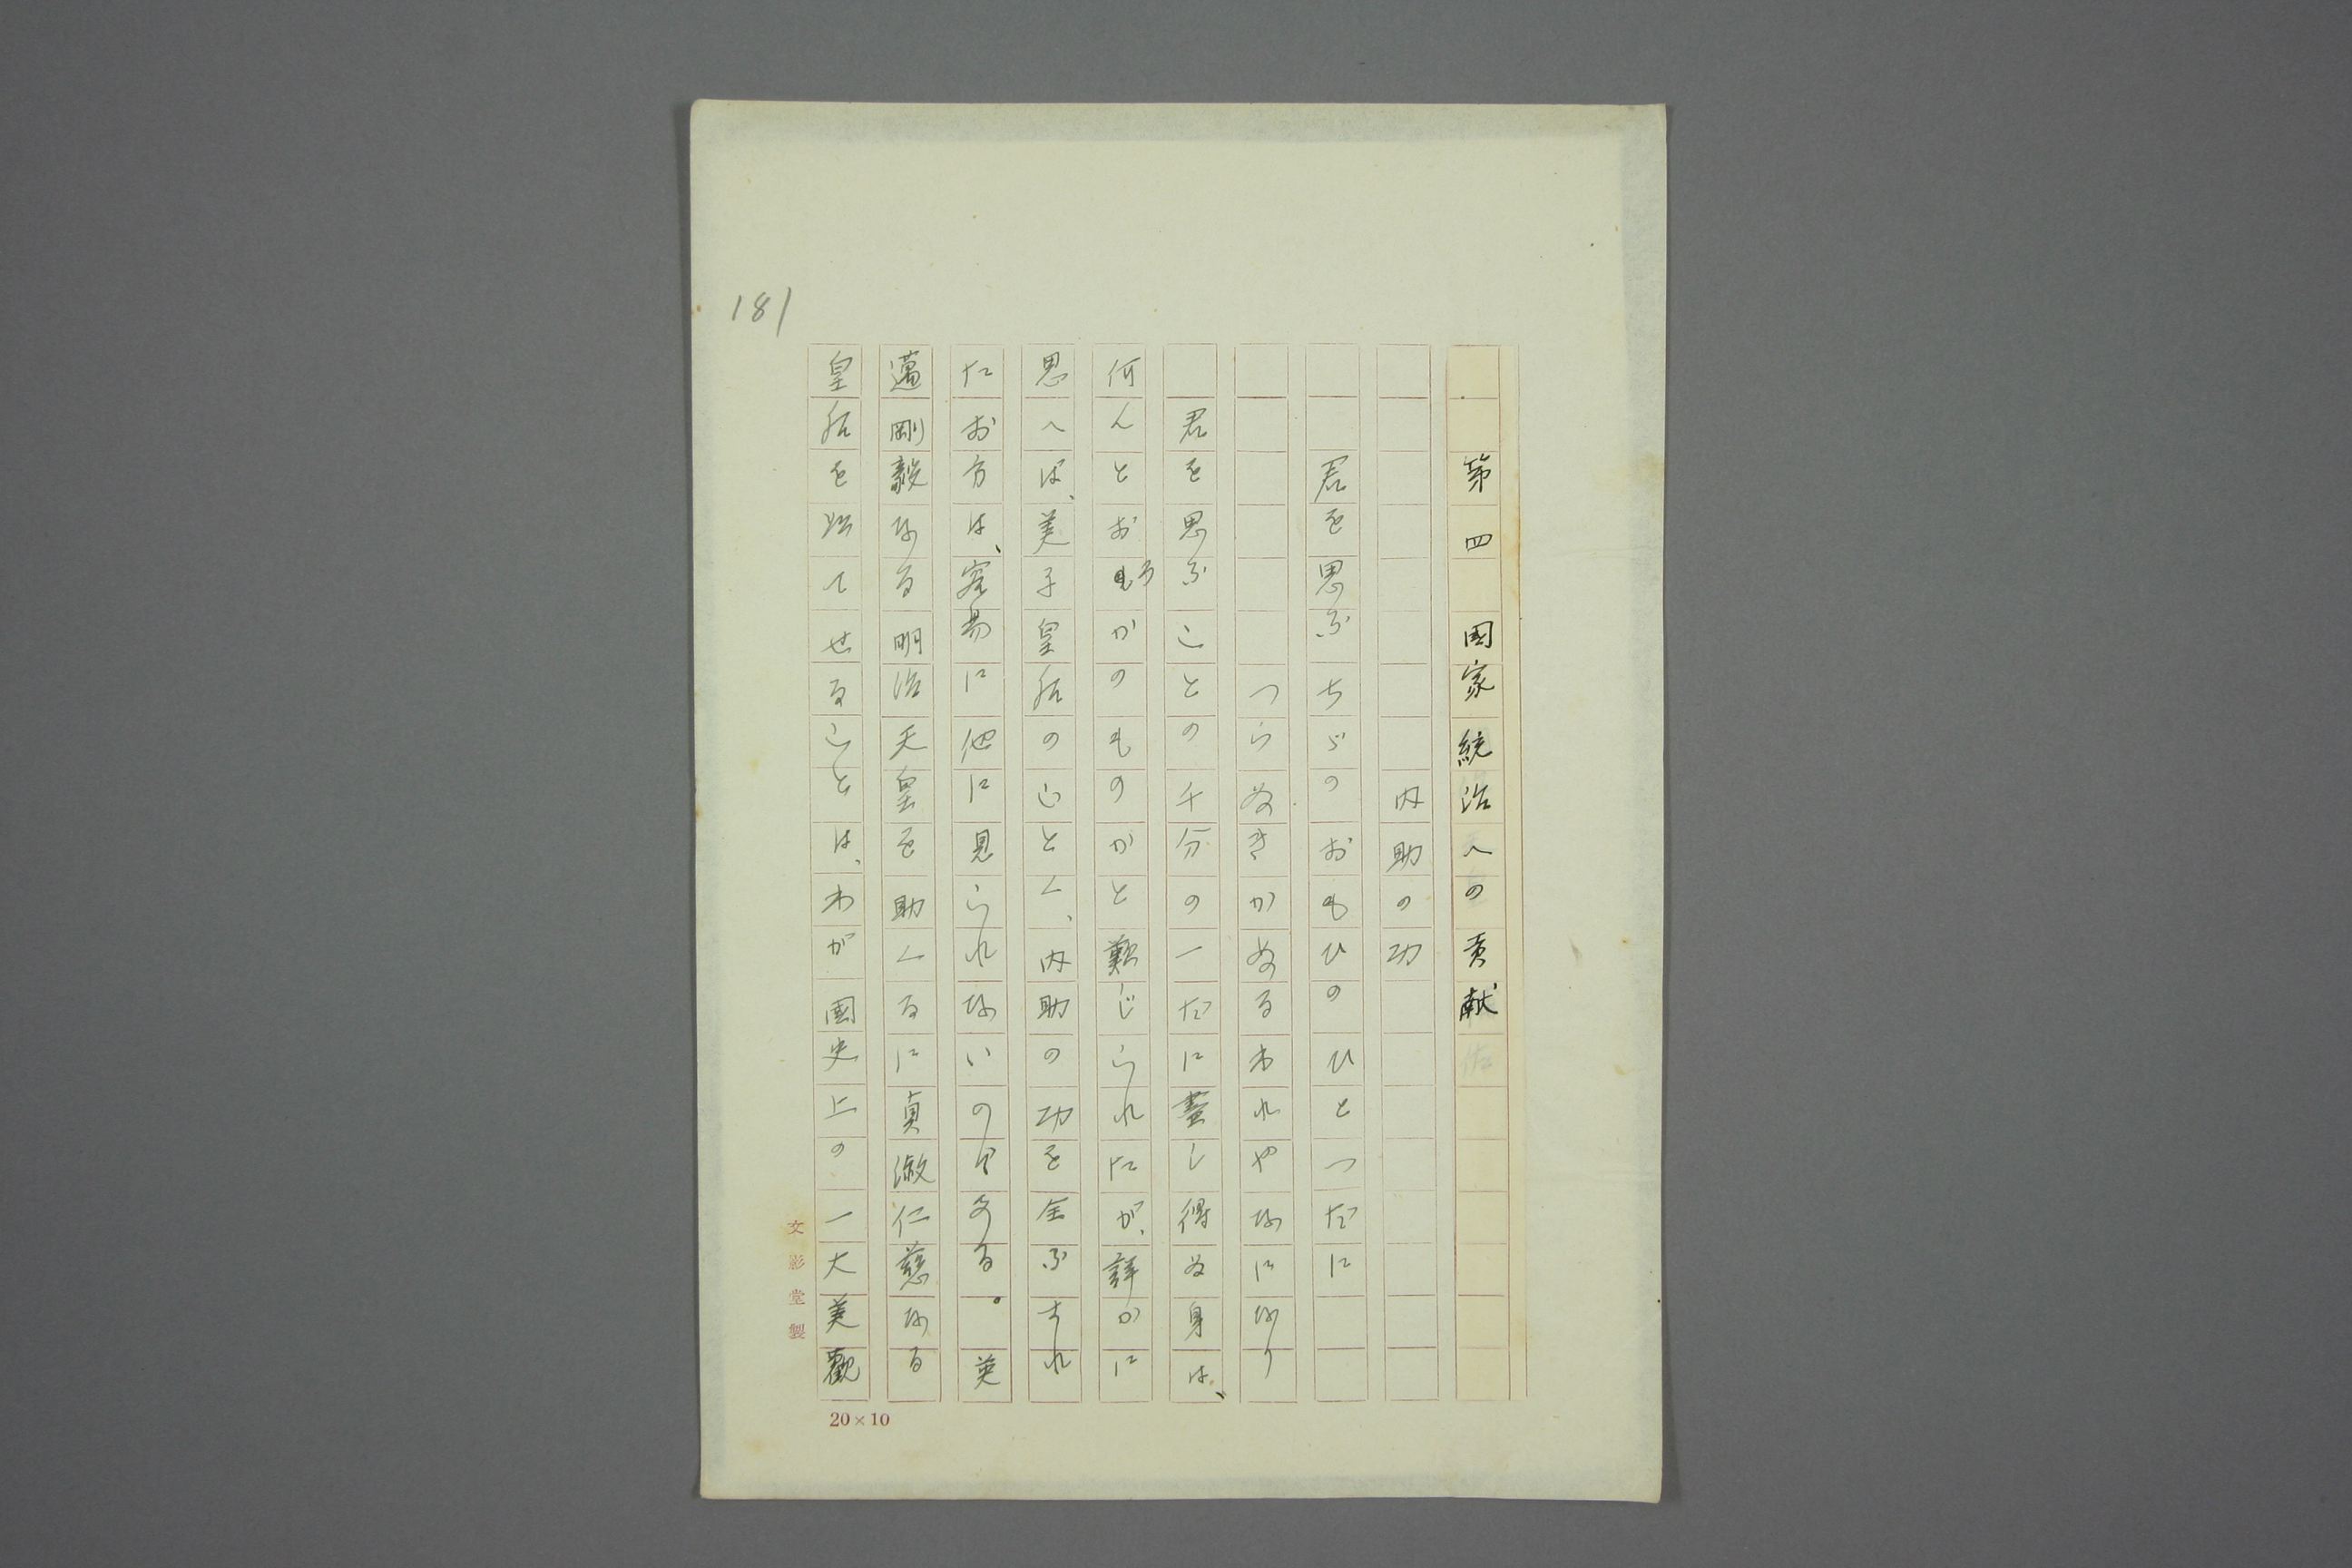 181
第四 国家統治への貢献
内助の功
君を思ふちゞのおもひのひとつだに
つらぬきかぬるわれやなになり
君を思ふことの千分の一だに盡し得ぬ身は、
何んとおろかのものかと難じられたが、詳かに
思へば、美子皇后のごとく、内助の功を全ふすれ
たお方は、容易に他に見られないのである。英
邁剛毅なる明治天皇を助くるに貞淑仁慈なる
皇后を以てせることは、わが國史上の一大美觀
文影堂製
20×10